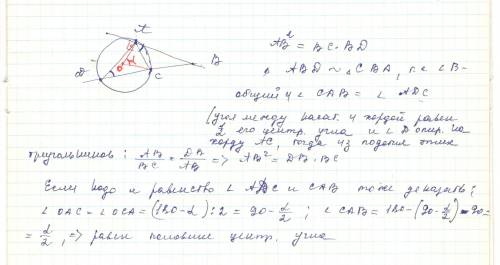 A
B
C
D
O
α
AB² = BC · BD
△ ABD ~ △ CBA, т.к ∠B-
общий и ∠ CAB = ∠ ADC
(угол между касат. и хордой равен
1/2 его центр. угла и ∠ D опир. на
хорду AC, тогда из подобия этих
треугольников: AB/BC = DB/AB => AB² = DB · BC
Если надо и равенство ∠ ADC и CAB тоже доказать:
∠ OAC = ∠ OCA = (180-α):2 = 90 - α/2 ; ∠ CAB = 180-(90-α/2)-90=
= α/2, => равен половине центр. угла